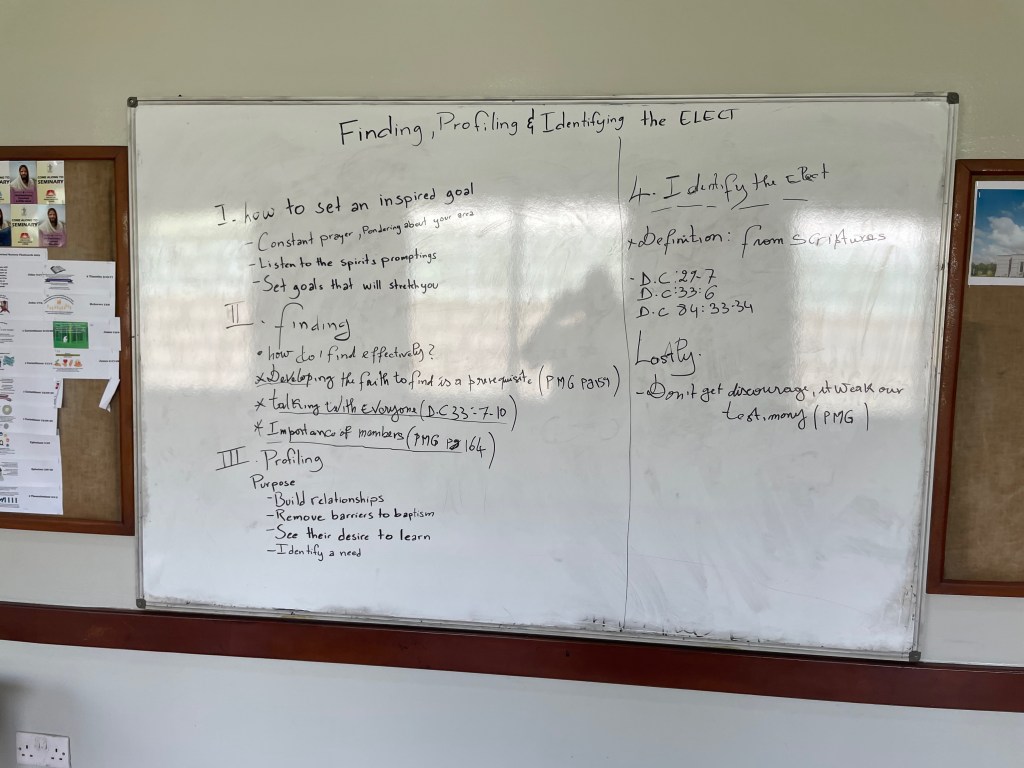 Finding, Profiling & Identifying the ELECT
I. how to set an inspired goal
- Constant prayer, Pondering about your area
- Listen to the spirits promptings
- Set goals that will stretch you
II. finding
• how do I find effectively?
* Developing the faith to find is a prerequisite (PMG Pg 159)
* talking with Everyone (D.C 33:-7-10)
* Importance of members (PMG Pg 164)
III. Profiling
Purpose
- Build relationships
- Remove barriers to baptism
- See their desire to learn
- Identify a need
4. Identify the Elect
* Definition: from scriptures
- D.C:29-7
D.C:33:6
D.C 84:33-34
Lastly.
- Don't get discourage, it weak our
testimony (PMG)
COME ALONG TO
SEMINARY
COME ALONG TO
SEMINARY